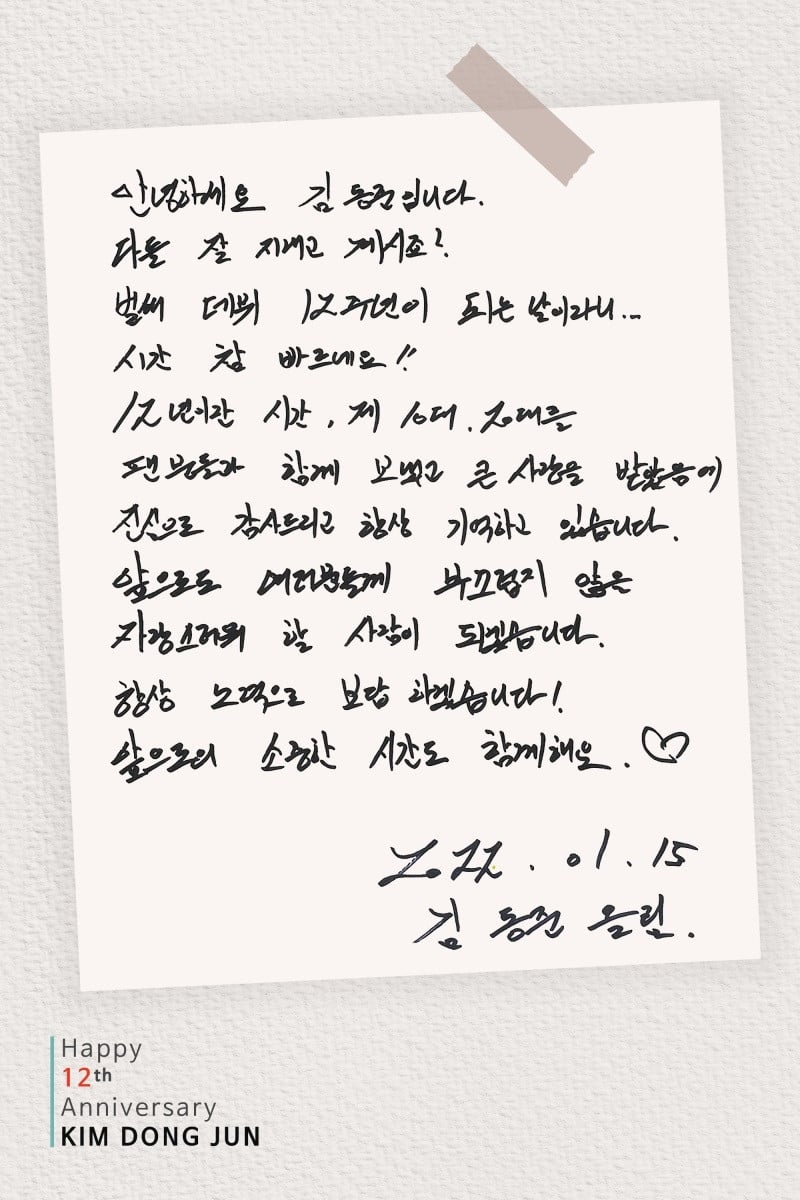 안녕하세요 김동준입니다.
다들 잘 지내고 계시죠?
벌써 데뷔 12주년이 되는 날이라니...
시간 참 빠르네요!!
12년이란 시간, 제 10대, 20대를
팬분들과 함께 보냈고 큰 사랑을 받았음에
진심으로 감사드리고 항상 기억하고 있습니다.
앞으로도 여러분들께 부끄럽지 않은
자랑스러워 할 사람이 되겠습니다.
항상 노력으로 보답하겠습니다!
앞으로의 소중한 시간도 함께해요. ♡
2022. 01. 15
김동준 올림.
Happy
12th
Anniversary
KIM DONG JUN